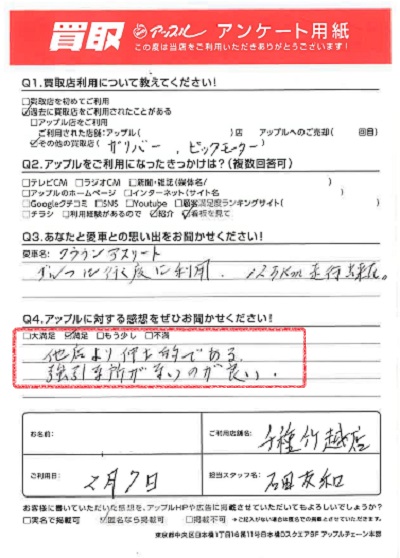 買取 アップル アンケート用紙
この度は当店をご利用いただきありがとうございます!
Q1.買取店利用について教えてください!
□買取を初めてご利用
☑過去に買取店をご利用されたことがある
□アップル店をご利用
ご利用された店舗:アップル( )店 アップルへのご売却( 回目)
☑その他の買取店( ガリバー、ビックモーター )
Q2.アップルをご利用になったきっかけは?(複数回答可)
□テレビCM □ラジオCM □新聞・雑誌(媒体名/ )
□アップルのホームページ □インターネット(サイト名 )
□Googleクチコミ □SNS □Youtube □顧客満足度ランキングサイト( )
□チラシ □利用経験があるので ☑紹介 ☑看板を見て
Q3.あなたと愛車との思い出をお聞かせください!
愛車名: クラウンアスリート
ゴルフに行く度に利用。12万km走行出来た。
Q4.アップルに対する感想をぜひお聞かせください!
□大満足 ☑満足 □もう少し □不満
他店より 的である。
強引な所がないのが良い。
お名前:
ご利用店舗名: 千種竹越店
ご利用日: 2月7日
担当スタッフ名: 石田友和
お客様に書いていただいた感想を、アップルHPや広告に掲載させていただいてもよろしいでしょうか?
□実名で掲載可 ☑匿名なら掲載可 □掲載不可 →ご記入がない場合は匿名での掲載とさせていただきます。
東京都中央区日本橋1丁目16番11号日本橋Dスクエア8F アップルチェーン本部